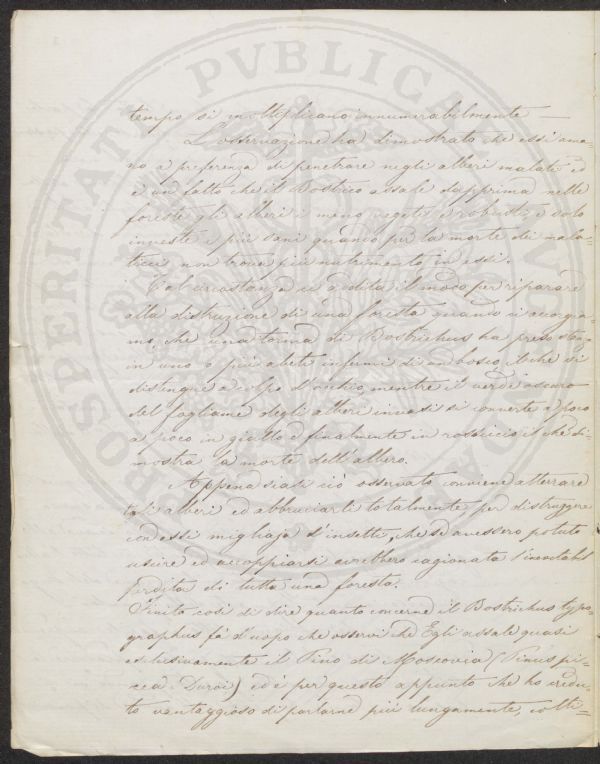 PROSPERITATI PVBLICAE
tempo si moltiplicano innumerabilmente —
L'osservazione ha dimostrato che essi ama-
no a preferenza di penetrare negli alberi malati ed
è un fatto che il Bostrico assale dapprima nelle
foreste gli alberi i meno vegeti e robusti, e solo
investe i più sani quando per la morte dei mala-
ticci non trova più nutrimento in essi.
Tal circostanza ci addita il modo per riparare
alla distruzione di una foresta quando ci accorgia-
mo, che una torma di Bostrichus ha preso stanza
in uno o più abeti infermi di un bosco, il che si
distingue a colpo d'occhio, mentre il verde oscuro
del fogliame degli alberi invasi si converte a poco
a poco in giallo e finalmente in rossiccio il che di-
mostra la morte dell'albero.
Appena siasi ciò osservato conviene atterrare
tali alberi ed abbruciarli totalmente per distruggere
con essi migliaja d'insetti, che se avessero potuto
uscire ed accoppiarsi avrebbero cagionata l'inevitabil
perdita di tutta una foresta.
Finito così di dire quanto concerne il Bostrichus typo-
graphus fa d'uopo che osservi che Egli assale quasi
esclusivamente il Pino di Moscovia (Pinus pi-
cea Duroi) ed è per questo appunto che ho credu-
to vantaggioso di parlarne più lungamente, colti-